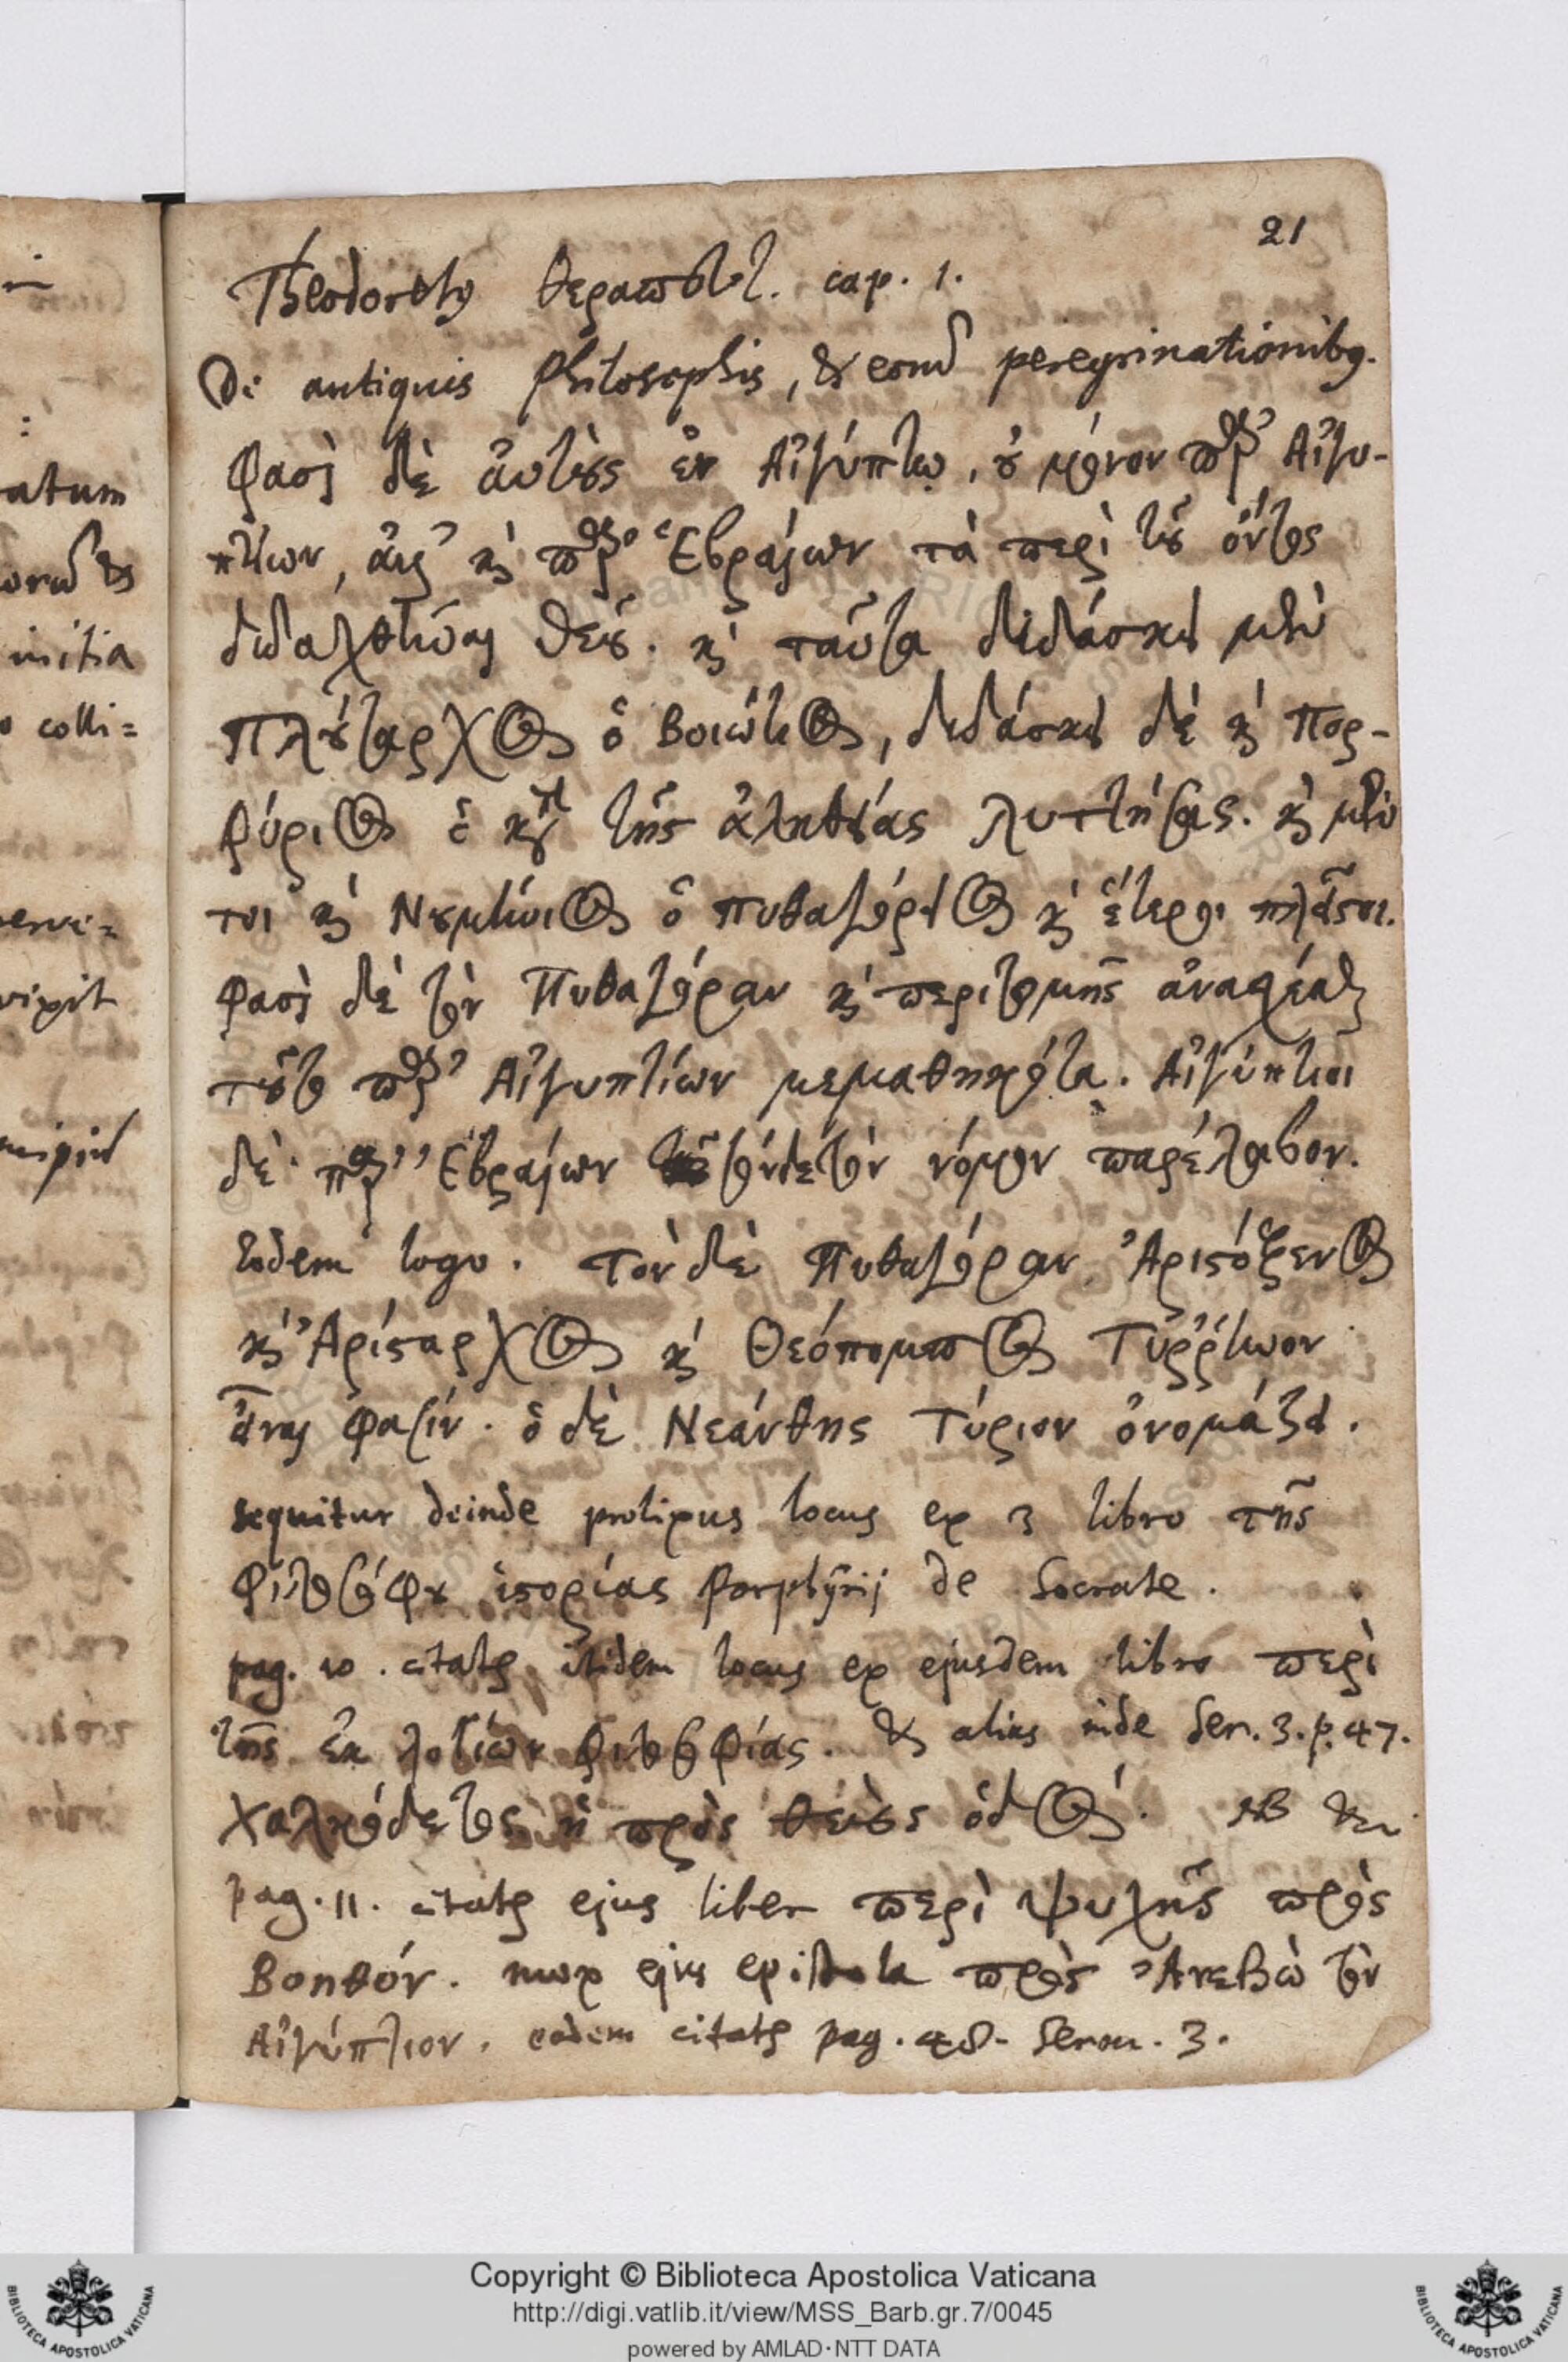 21
Theodoretus θεραπευτ. cap. 1.
De antiquis Philosophis, & eorum peregrinationibus.
Φασὶ δὲ ἀυτοὺς ἐν Αἰγύπτῳ, οὐ μόνον παρ' Αἰγυ-
πτίων, ἀλλ' καὶ παρ' Ἑβραίων τὰ περὶ τοῦ ὄντος
διδαχθῆναι θεοῦ. καὶ ταῦτα διδάσκει μὲν
Πλούταρχος ὁ Βοιώτιος, διδάσκει δὲ καὶ Πορ-
φύριος ὁ κατὰ τῆς ἀληθείας λυττήσας. καὶ μὲν
τοι καὶ Νουμήνιος ὁ πυθαγόρειος καὶ ἕτεροι πλεῖστοι.
φασὶ δὲ τὸν Πυθαγόραν καὶ περιτομῆς ἀνασχέσθαι
τοῦτο παρ' Αἰγυπτίων μεμαθηκότα. Αἰγύπτιοι
δὲ παρ' Ἑβραίων τόνδε τὸν νόμον παρέλαβον.
Eodem loco. Τὸν δὲ Πυθαγόραν Ἀριστόξενος
καὶ Ἀρίσταρχος καὶ Θεόπομπος Τυῤῥηνον
εἶναι φασίν. ὁ δὲ Νεάνθης Τύριον ὀνομάζει.
sequitur deinde prolixus locus ex 3 libro τῆς
φιλοσόφου ἱστορίας Porphyrij de Socrate.
pag. 10. citatur itidem locus ex ejusdem libro περὶ
τῆς ἐκ λογίων φιλοσοφίας. & alius inde Ser. 3. p. 47.
χαλκόδετος ἡ πρὸς θεοὺς ὁδός. NB
pag. 11. citatur ejus liber περὶ ψυχῆς πρὸς
Βοηθόν. mox ejus epistola πρὸς Ἀνεβὼ τὸν
Αἰγύπτιον. eadem citatur pag. 48. Serm. 3.
atum
initia
colli=
servi=
vixit
Copyright © Biblioteca Apostolica Vaticana
http://digi.vatlib.it/view/MSS_Barb.gr.7/0045
powered by AMLAD·NTT DATA
BIBLIOTECA APOSTOLICA VATICANA
BIBLIOTECA APOSTOLICA VATICANA